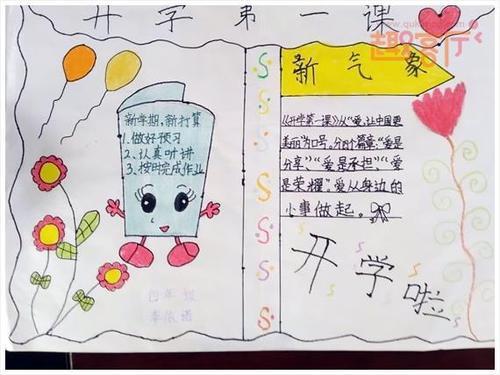 开学第一课
新气象
新学期,新打算
1、做好预习
2、认真听讲
3、按时完成作业
《开学第一课》以“爱,让中国更
美丽”为口号,分4个篇章:“爱是
分享”、“爱是承担”、“爱
是荣耀”爱从身边的
小事做起。
开学啦
四年级